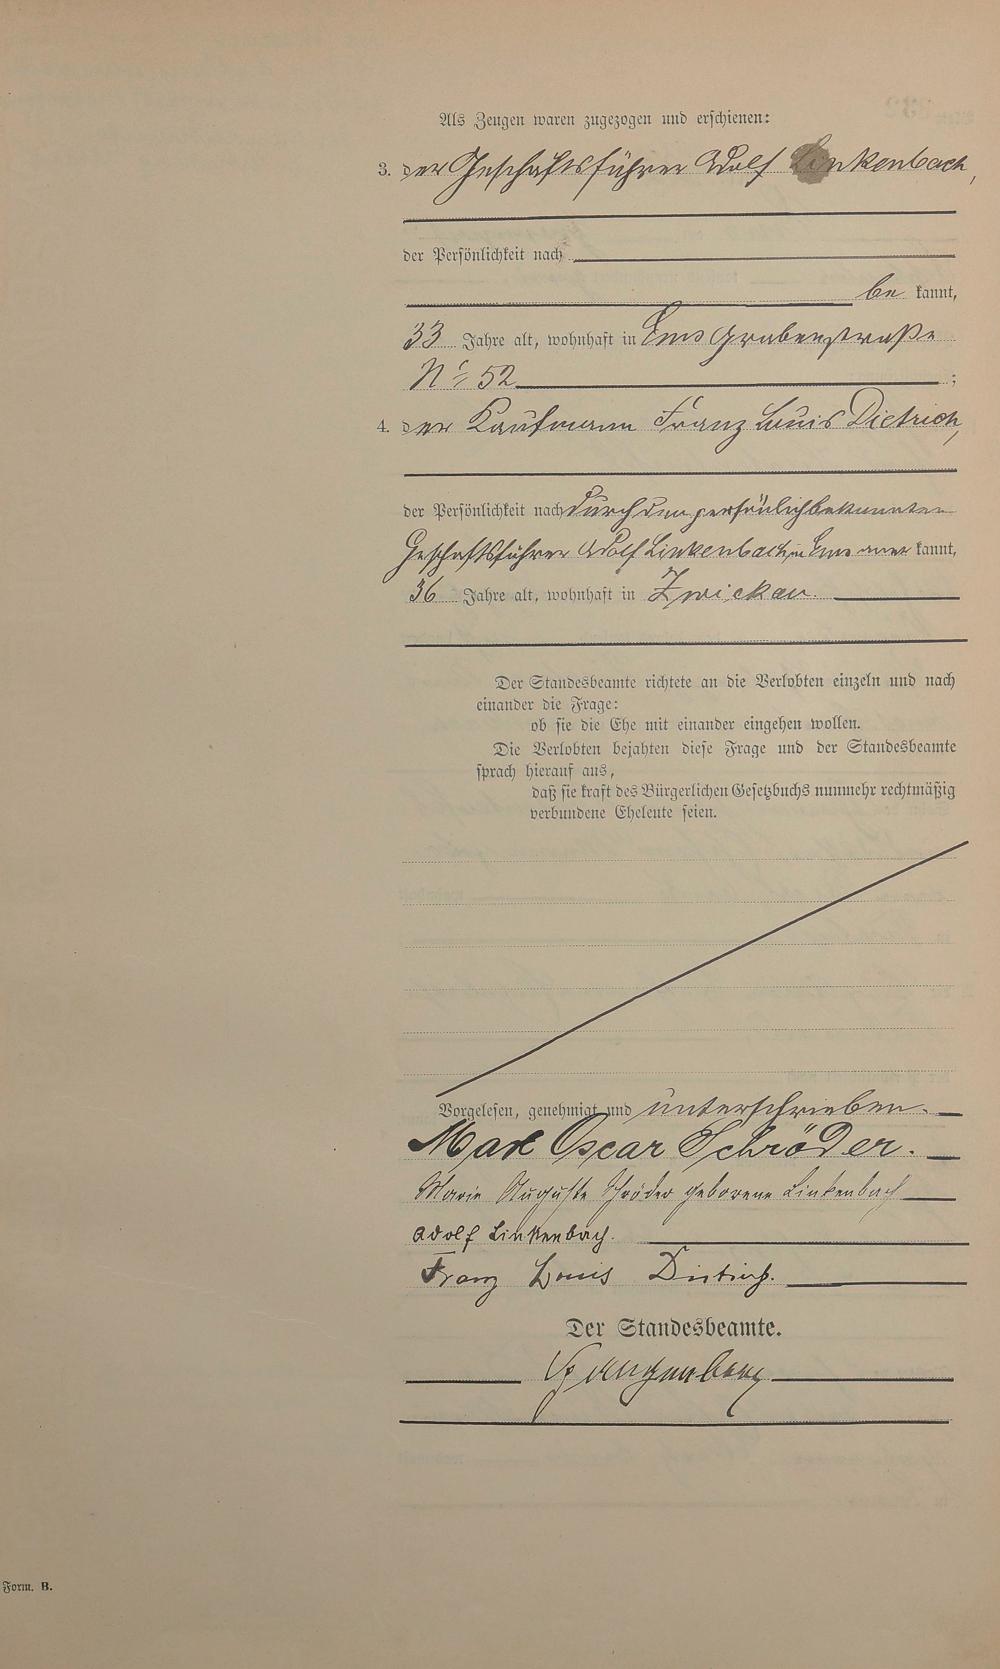 Als Zeugen waren zugezogen und erschienen:
3. der Geschäftsführer Adolf Linkenbach,
der Persönlichkeit nach
be kannt,
33 Jahre alt, wohnhaft in Ems Grabenstraße
No 52 ;
4. der Kaufmann Franz Louis Dietrich,
der Persönlichkeit nach durch den persönlich bekannten
Geschäftsführer Adolf Linkenbach in Ems aner kannt,
36 Jahre alt, wohnhaft in Zwickau.
Der Standesbeamte richtete an die Verlobten einzeln und nach
einander die Frage:
ob sie die Ehe mit einander eingehen wollen.
Die Verlobten bejahten diese Frage und der Standesbeamte
sprach hierauf aus,
daß sie kraft des Bürgerlichen Gesetzbuchs nunmehr rechtmäßig
verbundene Eheleute seien.
Vorgelesen, genehmigt und unterschrieben.
Max Oscar Schröder.
Marie Auguste Schröder geborene Linkenbach
Adolf Linkenbach.
Franz Louis Dietrich.
Der Standesbeamte.
Spangenberg
Form. B.